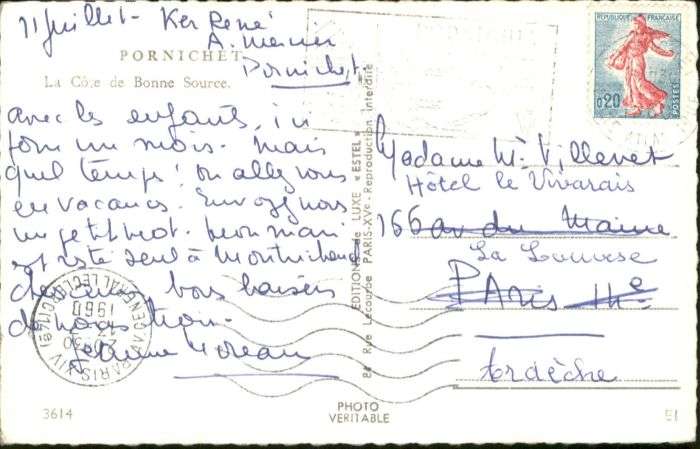 11 juillet - Ker René
A. menier
Pornichet.
PORNICHET
La Côte de Bonne Source.
avec les enfants, ici
pour un mois. Mais
quel temps! où allez vous
en vacances. Envoyez nous
un petit mot. mon mari
est resté seul à
bons baisers
de nous trois.
Moreau
3614
EDITIONS de LUXE « ESTEL »
84 Rue Lecourbe PARIS-XVe - Reproduction interdite
PHOTO
VERITABLE
REPUBLIQUE FRANÇAISE
0,20
POSTES
Madame M. Villenet
Hôtel le Vivarais
166 av du Maine
La Louvesc
Paris 14e
Ardèche
PARIS XIV
AV. DU GENERAL LECLERC (14e)
1960
EI